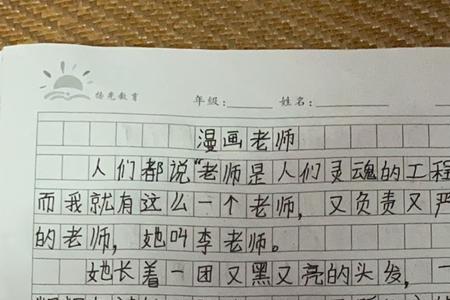 扬光教育
年级:
姓名:
漫画老师
人们都说“老师是人们灵魂的工程
而我就有这么一个老师,又负责又严
的老师,她叫李老师。
她长着一团又黑又亮的头发,一